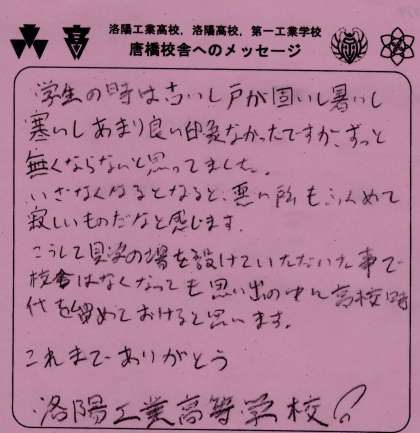 高
洛陽工業高校，洛陽高校，第一工業学校
唐橋校舎へのメッセージ
学生の時は古いし戸が固いし暑いし
寒いしあまり良い印象なかったですが、ずっと
無くならないと思ってました。
いざなくなるとなると、悪い所もふくめて
寂しいものだなと感じます。
こうして見学の場を設けていただいた事で
校舎はなくなっても思い出の中に高校時
代を留めておけると思います。
これまでありがとう
洛陽工業高等学校！